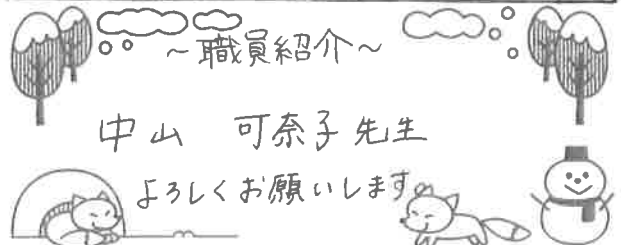 ～職員紹介～
中山　可奈子先生
よろしくお願いします。